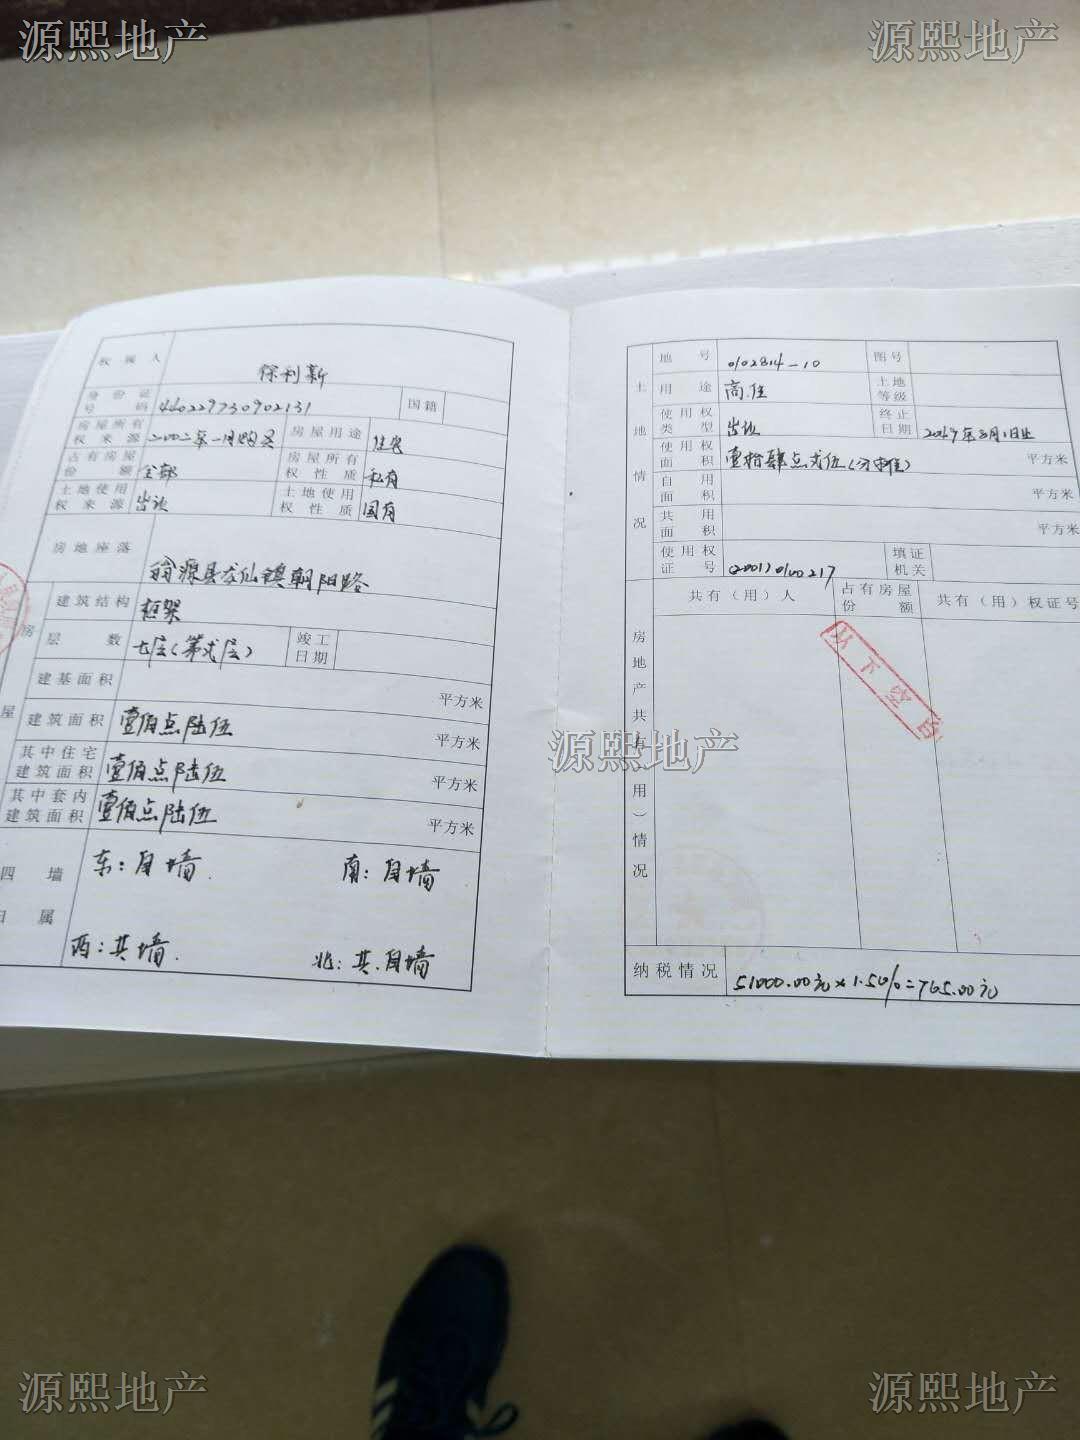 源熙地产
源熙地产
权属人
徐利新
身份证号码
440229730902131
国籍
房屋所有权来源
二00二年一月购买
房屋用途
住宅
占有房屋份额
全部
房屋所有权性质
私有
土地使用权来源
出让
土地使用权性质
国有
房地座落
翁源县龙仙镇朝阳路
房屋
建筑结构
框架
层数
七层(第弍层)
竣工日期
建基面积
平方米
建筑面积
壹佰点陆伍
平方米
其中住宅建筑面积
壹佰点陆伍
平方米
其中套内建筑面积
壹佰点陆伍
平方米
四墙归属
东:自墙.
南:自墙
西:共墙.
北:共.自墙
土地情况
地号
0102814-10
图号
用途
商.住
土地等级
使用权类型
出让
终止日期
2049年8月1日止
使用权面积
壹拾肆点弍伍(分摊)
平方米
自用面积
平方米
共用面积
平方米
使用权证号
(2001)0100217
填证机关
房地产共有(用)情况
共有(用)人
占有房屋份额
共有(用)权证号
以下空白
源熙地产
纳税情况
51000.00元×1.5%=765.00元
源熙地产
源熙地产